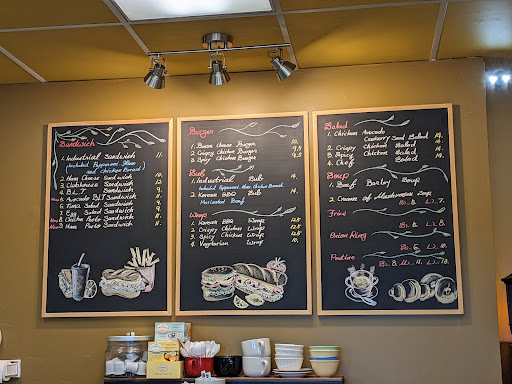 Sandwich
1. Industrial Sandwich 11.
Included Pepperoni, Ham
(and chicken Breast)
2. Ham Cheese Sandwich
3. Clubhouse Sandwich
4. B.L.T. Sandwich
5. Avocado BLT Sandwich
6. Tuna Salad Sandwich
7. Egg Salad Sandwich
8. Panko Sandwich
9. Ham Panko Sandwich
Burger
1. Bacon Cheese Burger 10.
2. Crispy Chicken Burger 9.8
3. Spicy Chicken Burger 9.8
Sub
1. Industrial Sub 14.
Included Pepperoni, Ham, Chicken Breast
2. Korean BBQ Sub 14.
Marinated Beef
Wrap
1. Korean BBQ Wrap 12.8
2. Crispy Chicken Wrap 12.8
3. Spicy Chicken Wrap 12.8
4. Vegetarian Wrap 10.
Salad
1. Chicken Avocado
Cranberry Seed Salad 14.
2. Crispy Chicken Salad 14.
3. Spicy Chicken Salad 14.
4. Chef Salad 14.
Soup
1. Beef Barley Soup
2. Cream of Mushroom Soup
S. 6. L. 7.
Fries
Onion Ring
Poutine